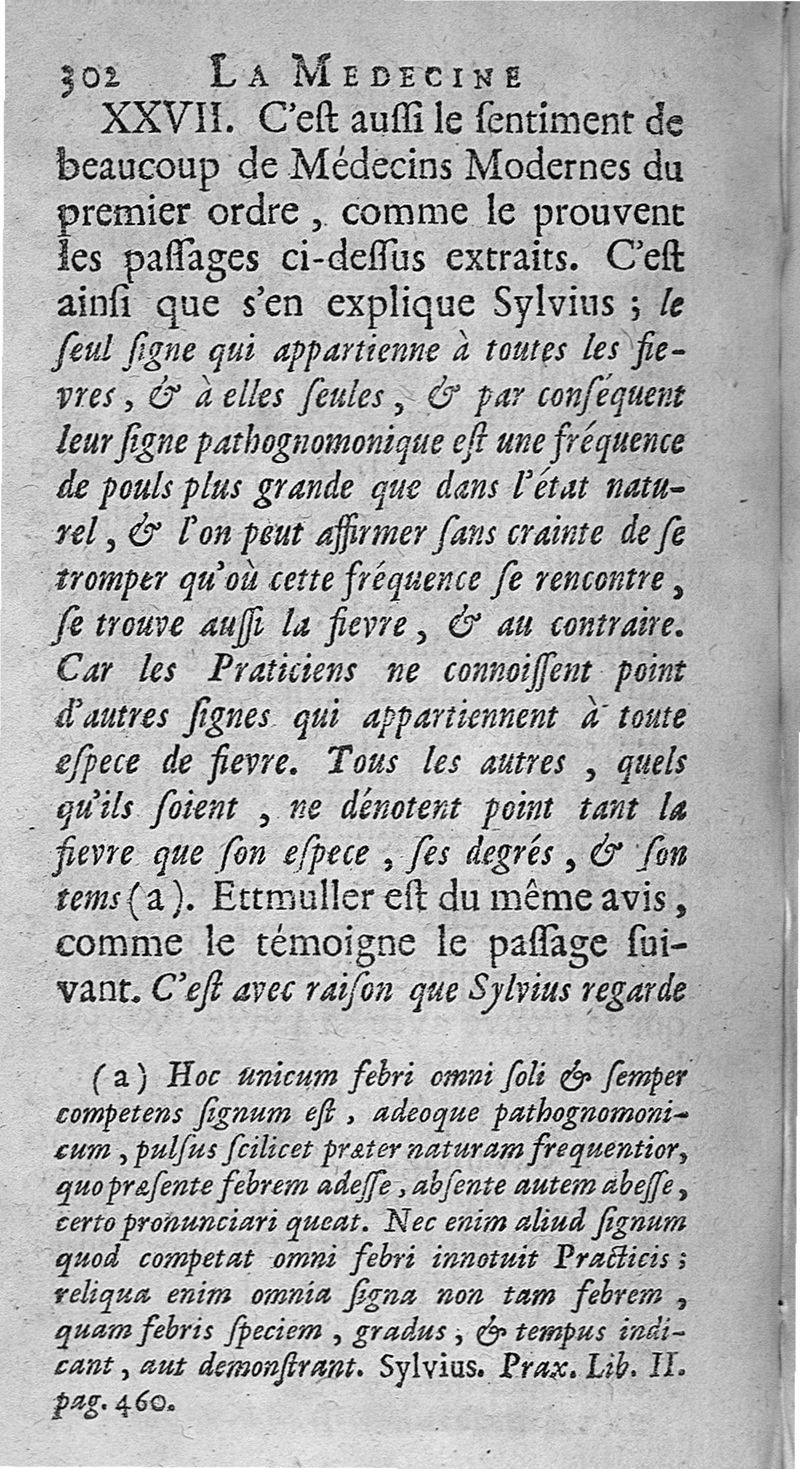 302 LA MEDECINE
XXVII. C'eſt auſſi le ſentiment de
beaucoup de Médecins Modernes du
premier ordre, comme le prouvent
les paſſages ci-deſſus extraits. C'eſt
ainſi que s'en explique Sylvius ; le
ſeul ſigne qui appartienne à toutes les fie-
vres, & à elles ſeules, & par conſéquent
leur ſigne pathognomonique eſt une fréquence
de pouls plus grande que dans l'état natu-
rel, & l'on peut affirmer ſans crainte de ſe
tromper qu'où cette fréquence ſe rencontre,
ſe trouve auſſi la fievre, & au contraire.
Car les Praticiens ne connoiſſent point
d'autres ſignes qui appartiennent à toute
eſpece de fievre. Tous les autres, quels
qu'ils ſoient, ne dénotent point tant la
fievre que ſon eſpece, ſes degrés, & ſon
tems (a). Ettmuller eſt du même avis,
comme le témoigne le paſſage ſui-
vant. C'eſt avec raiſon que Sylvius regarde
(a) Hoc unicum febri omni ſoli & ſemper
competens ſignum eſt, adeoque pathognomoni-
cum, pulſus ſcilicet præter naturam frequentior,
quo præſente febrem adeſſe, abſente autem abeſſe,
certo pronunciari queat. Nec enim aliud ſignum
quod competat omni febri innotuit Practicis ;
reliqua enim omnia ſigna non tam febrem,
quam febris ſpeciem, gradus, & tempus indi-
cant, aut demonſtrant. Sylvius. Prax. Lib. II.
pag. 460.